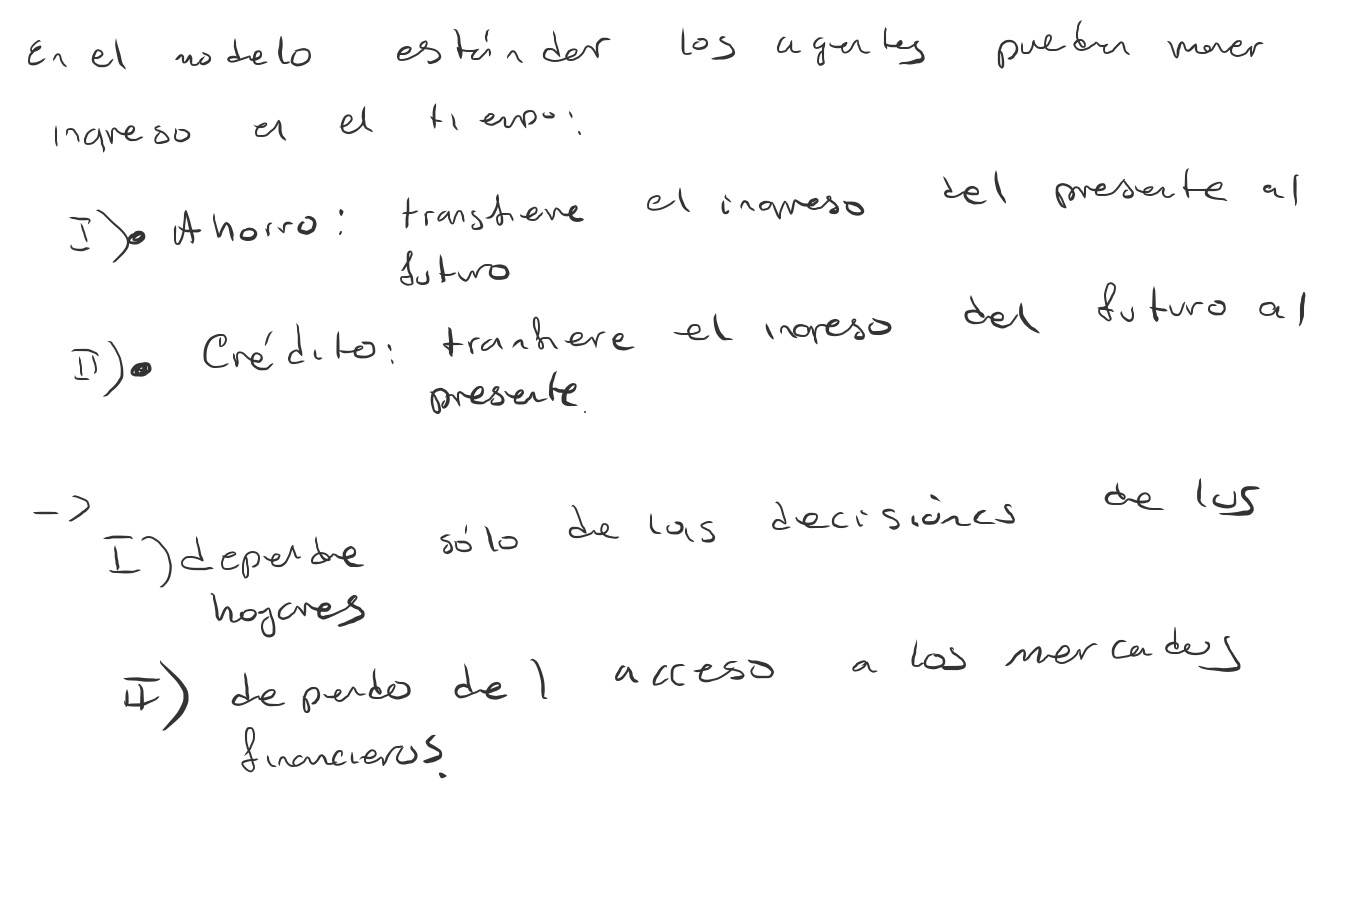 En el modelo estándar los agentes pueden mover
ingreso en el tiempo:
I) • Ahorro: transfiere el ingreso del presente al
futuro
II) • Crédito: tranfiere el ingreso del futuro al
presente.
->
I) depende sólo de las decisiones de los
hogares
II) depende del acceso a los mercados
financieros.